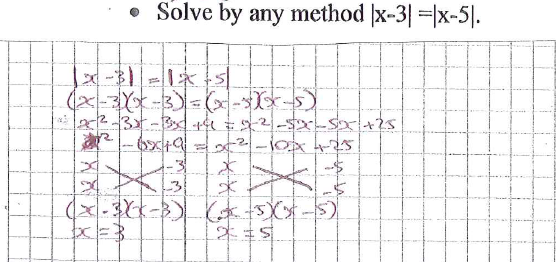 • Solve by any method |x-3| =|x-5|.
|x-3| = |x-5|
(x-3)(x-3) = (x-5)(x-5)
x²-3x-3x+9 = x²-5x-5x+25
x²-6x+9 = x²-10x+25
x -3 x -5
x -3 x -5
(x-3)(x-3) (x-5)(x-5)
x=3 x=5